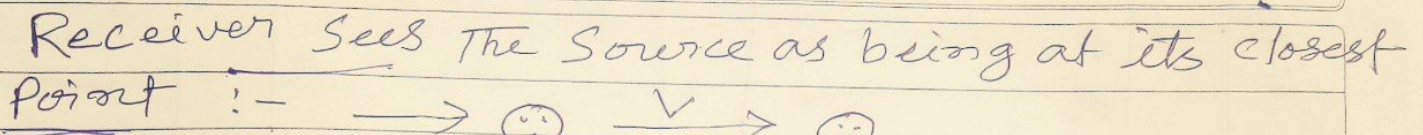 Receiver Sees The Source as being at its closest
Point :- → V →